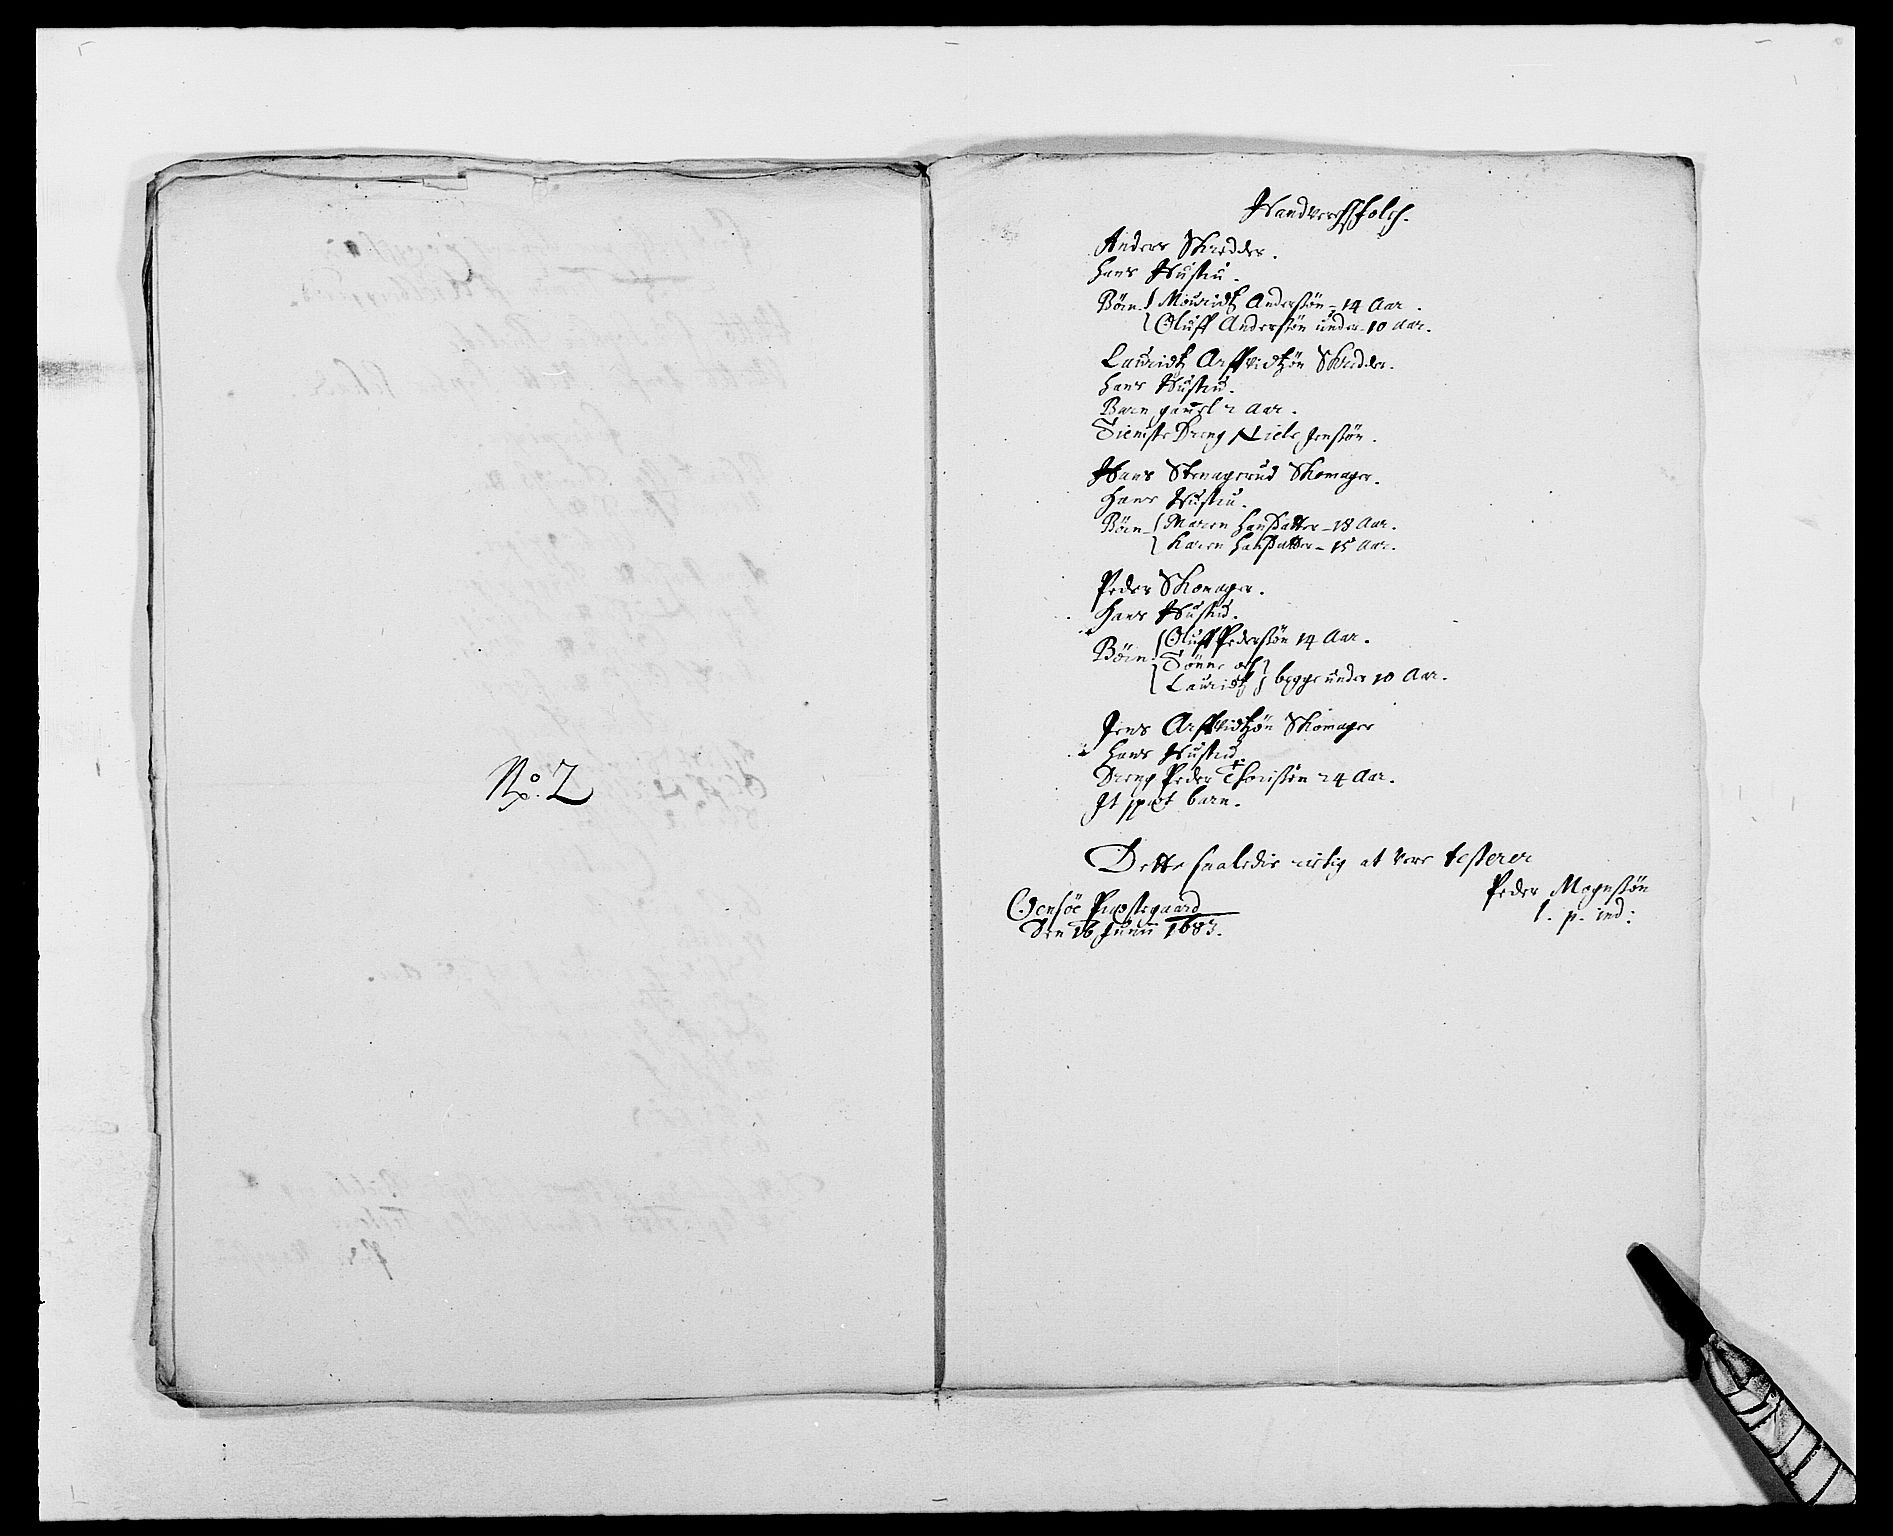 No. 2
Handverchsfolch.
Anders Skredder.
Hans Hustru.
Børn Mouridtz Anderssøn – 14 Aar.
Oluff Anderssøn under 10 Aar.
Lauridtz Arffvidtzøn Skredder.
Hans Hustru.
Barn gamel 2 Aar.
Tieniste Dreng Niels Jenssøn.
Hans Stenagerud Skomager.
Hans Hustru.
Børn Maren Hansdatter – 18 Aar.
Karen Hansdatter – 15 Aar.
Peder Skomager.
Hans Hustru.
Børn Oluff Pederssøn 14 Aar.
Tønne och
Lauridtz begge under 10 Aar.
Jens Arffvidtzøn Skomager
Hans Hustru
Dreng Peder Thorissøn 24 Aar.
It spæt barn.
Dette saaledis rictig at vere testerer
Peder Mognssøn
Odensøe Præstegaard
Den 16 Junii 1683.